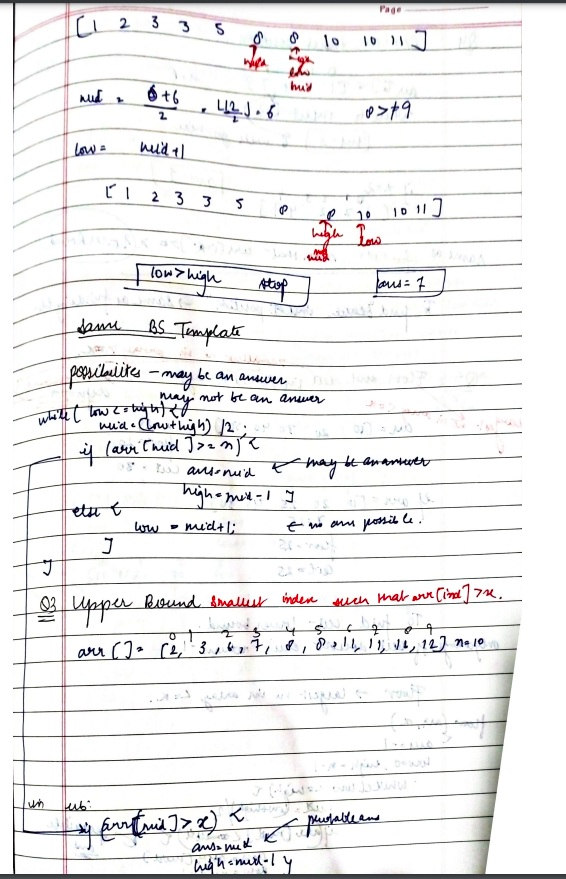 Page
[ 1 2 3 3 5 8 8 10 10 11 ]
high
low
mid
mid = 6+6 / 2 = ⌊12/2⌋ = 6 8 > 9
low = mid+1
[ 1 2 3 3 5 8 8 10 10 11 ]
high low
mid
low > high stop ans = 7
Same BS Template
possibilites - may be an answer
may not be an answer
while ( low <= high ) {
mid = (low+high) /2 ;
if (arr [mid] >= x) {
ans = mid ← may be an answer
high = mid-1 }
else {
low = mid+1; ← no ans possible.
}
}
Q3 Upper Bound smallest index such that arr[ind] > x.
0 1 2 3 4 5 6 7 8 9
arr [] = [2, 3, 6, 7, 8, 8, 11, 11, 11, 12] n=10
ub:
if (arr[mid] > x) {
ans = mid
high = mid-1 }